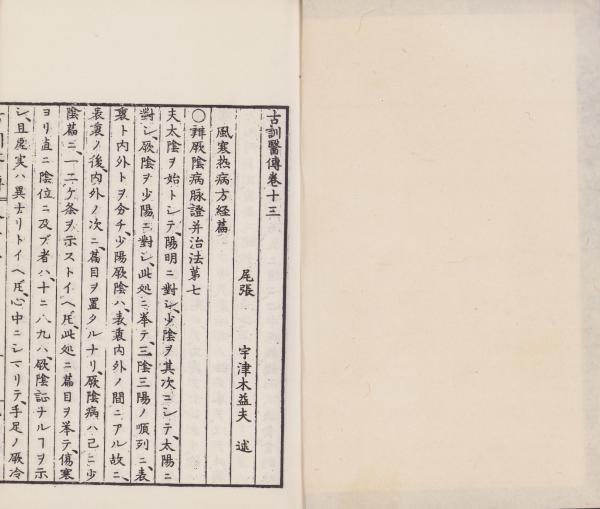 古訓醫傳卷十三
尾張 宇津木益夫 述
風寒熱病方経篇
〇辨厥陰病脉證并治法第七
夫太陰ヲ始トシテ、陽明ニ對シ、少陰ヲ其次ニシテ、太陽ニ
對シ、厥陰ヲ少陽ニ對シ、此処ニ挙テ、三陰三陽ノ順列ニ、表
裏ト内外トヲ分チ、少陽厥陰ハ、表裏内外ノ間ニアル故ニ、
表裏ノ後、内外ノ次ニ、篇目ヲ置タルナリ、厥陰病ハ已ニ少
陰篇ニ、一二ケ条ヲ示ストイヘ𪜈、此処ニ篇目ヲ挙テ、傷寒
ヨリ直ニ陰位ニ及ブ者ハ、十ニ八九ハ、厥陰証ナルヿヲ示
シ、且虚実ハ異ナリトイヘ𪜈、心中ニシマリテ、手足ノ厥冷